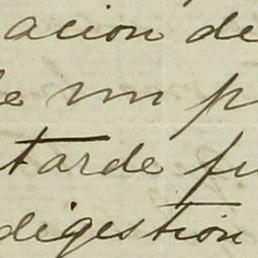 acion de
e un p
tarde fu
digestion